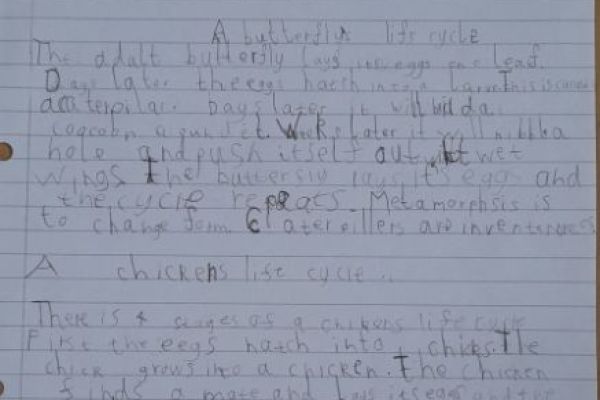 A butterflys life cycle
The adalt butterfly lays its eggs one leaf.
Days later the eggs hatch into a Larva This is
a caterpilar. Days later it will bild a
around it. Weeks later it will nibble a
hole and push itself out wet
wings the butterfly lays it's egg and
the cycle repeats. Metamorphsis is
to change form. are
A chickens life cycle..
There is 4 stages of a chikens life cycle
First the eegs hatch into chicks. The
chick grows into a chicken. The chicken
finds a mate and lays its eggs and the